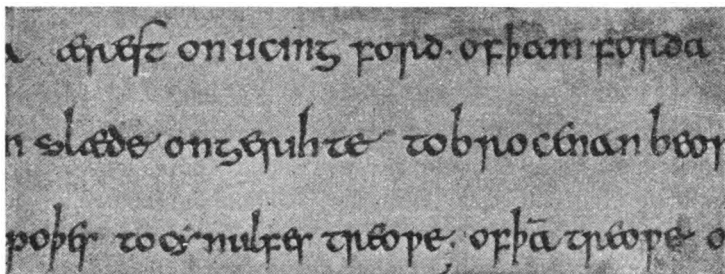 ærest on ucing ford. of þam forda
n slæde on gerihte to brocenan beor
ƿoþes to cynulfes treoƿe. of þā treoƿe o